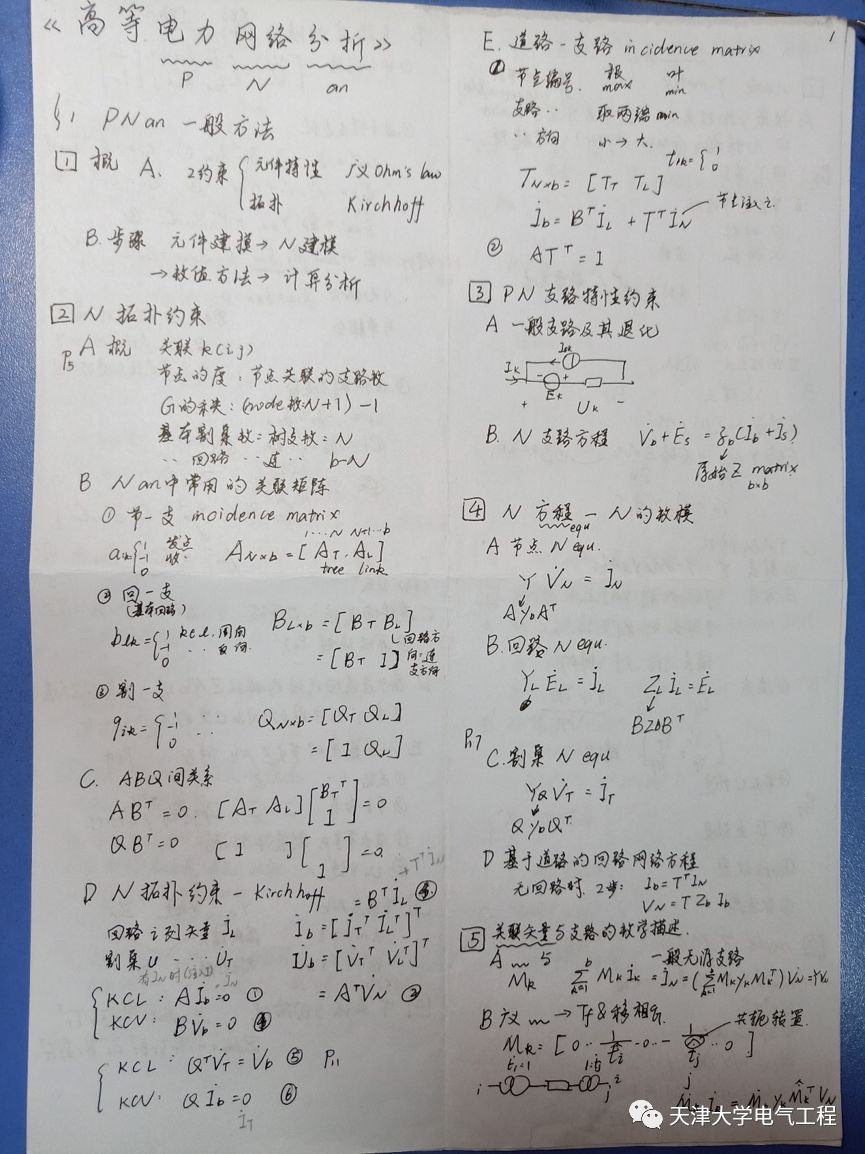 《高等电力网络分析》
P N an
§1 PNan 一般方法
1 概 A. 2约束 { 元件特性 广义Ohm's law
拓扑 Kirchhoff
B. 步骤 元件建模→N建模
→数值方法→计算分析
2 N 拓扑约束
P5 A 概 关联k(i,j)
节点的度:节点关联的支路数
G的秩:(node数:N+1)-1
基本割集数=树支数:N
‥ 回路 ‥ 连 ‥ b-N
B Nan中常用的关联矩阵
① 节-支 incidence matrix
aik={1 -1 0 发点 收‥ AN×b=[AT, AL]
1…N N+1…b
tree link
② 回-支
(基本回路)
blk={1 -1 0 k∈l, 同向 反向. BL×b=[BT BL]
=[BT I]
回路方向:连支方向
③ 割-支
qik={1 -1 0 ‥ QN×b=[QT QL]
=[I QL]
C. ABQ间关系
AB^T=0. [AT AL][BT^T I]=0
QB^T=0 [I ][ I]=0
D N拓扑约束-Kirchhoff =B^T İL ③ +T^T İN
回路之列矢量 İL İb=[İT^T İL^T]^T
割集u ‥ ‥ U̇T U̇b=[V̇T^T V̇L^T]^T
KCL: Aİb=0 ① =A^T V̇N ②
KCV: BV̇b=0 ④
KCL: Q^T V̇T=V̇b ⑤ P11
KCV: Qİb=0 ⑥
İT
1
E. 道路-支路 incidence matrix
① 节点编号. 根max 叶min
支路‥ 取两端min
‥方向 小→大.
tik={1 0
TN×b=[TT TL]
İb=B^T İL+T^T İN 节点注入
② AT^T=I
3 PN 支路特性约束
A 一般支路及其退化
Isk
Ik - + Ek
+ Uk -
B. N 支路方程 V̇b+Ės=zb(İb+İs)
原始Z matrix
b×b
4 N 方程-N的数模
equ
A 节点 N equ.
Y V̇N=İN
AybA^T
B.回路 N equ.
YL ĖL=İL ZL İL=ĖL
BZbB^T
P17
C.割集 N equ
YQ V̇T=İT
QybQ^T
D 基于道路的回路网络方程
无回路时, 2步: Ib=T^T IN
VN=T Zb Ib
5 关联矢量与支路的数学描述.
A m 与 一般无源支路
Mk Σ(k=1,b) Mk İk=İN=(Σ(k=1,b) Mk yk Mk^T)VN=YVN
B 广义m→Tf&移相.
共轭转置.
i j
天津大学电气工程